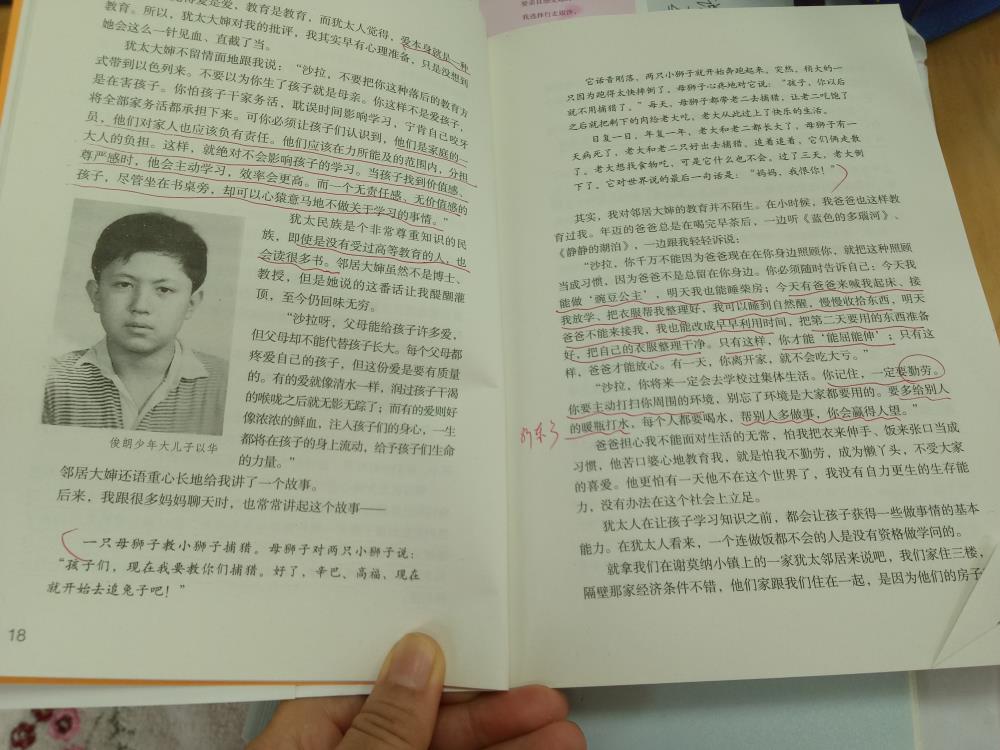 得爱是爱，教育是教育，而犹太人觉得，爱本身就是一种
教育。所以，犹太大婶对我的批评，我其实早有心理准备，只是没想到
她会这么一针见血、直截了当。
犹太大婶不留情面地跟我说：“沙拉，不要把你这种落后的教育方
式带到以色列来。不要以为你生了孩子就是母亲。你这样不是爱孩子，
是在害孩子。你怕孩子干家务活，耽误时间影响学习，宁肯自己咬牙
将全部家务活都承担下来。可你必须让孩子们认识到，他们是家庭的一
员，他们对家人也应该负有责任。他们应该在力所能及的范围内，分担
大人的负担。这样，就绝对不会影响孩子的学习。当孩子找到价值感、
尊严感时，他会主动学习，效率会更高。而一个无责任感、无价值感的
孩子，尽管坐在书桌旁，却可以心猿意马地不做关于学习的事情。”
犹太民族是个非常尊重知识的民
族，即使是没有受过高等教育的人，也
会读很多书。邻居大婶虽然不是博士、
教授，但是她说的这番话让我醍醐灌
顶，至今仍回味无穷。
“沙拉呀，父母能给孩子许多爱，
但父母却不能代替孩子长大。每个父母都
疼爱自己的孩子，但这份爱是要有质量
的。有的爱就像清水一样，润过孩子干渴
的喉咙之后就无影无踪了；而有的爱则好
像浓浓的鲜血，注入孩子们的身心，一生
都将在孩子的身上流动，给予孩子们生命
的力量。”
俊朗少年大儿子以华
邻居大婶还语重心长地给我讲了一个故事。
后来，我跟很多妈妈聊天时，也常常讲起这个故事——
一只母狮子教小狮子捕猎。母狮子对两只小狮子说：
“孩子们，现在我要教你们捕猎。好了，辛巴、高福、现在
就开始去追兔子吧！”
18
我选择行走瑜珈，
它话音刚落，两只小狮子就开始奔跑起来，突然，稍大的一
只因为跑得太快摔倒了，母狮子心疼地对它说：“孩子，你以后
就不用捕猎了。”每天，母狮子都带老二去捕猎，让老二吃饱了
之后就把剩下的肉给老大吃，老大从此过上了快乐的生活。
日复一日，年复一年，老大和老二都长大了，母狮子有一
天病死了，老大和老二只好出去捕猎，追着追着，它们俩走散
了。老大想找食物吃，可是它什么也不会。过了三天，老大倒
下了，它对世界说的最后一句话是：“妈妈，我恨你！”
其实，我对邻居大婶的教育并不陌生。在小时候，我爸爸也这样教
育过我。年迈的爸爸总是在喝完早茶后，一边听《蓝色的多瑙河》、
《静静的湖泊》，一边跟我轻轻诉说：
“沙拉，你千万不能因为爸爸现在在你身边照顾你，就把这种照顾
当成习惯，因为爸爸不是总留在你身边。你必须随时告诉自己：今天我
能做‘豌豆公主’，明天我也能睡柴房；今天有爸爸来喊我起床、接
我放学、把衣服帮我整理好，我可以睡到自然醒，慢慢收拾东西，明天
爸爸不能来接我，我也能改成早早利用时间，把第二天要用的东西准备
好，把自己的衣服整理干净。只有这样，你才能‘能屈能伸’；只有这
样，爸爸才能放心。有一天，你离开家，就不会吃大亏。”
“沙拉，你将来一定会去学校过集体生活。你记住，一定要勤劳。
你要主动打扫你周围的环境，别忘了环境是大家都要用的。要多给别人
的暖瓶打水，每个人都要喝水，帮别人多做事，你会赢得人望。”
爸爸担心我不能面对生活的无常，怕我把衣来伸手、饭来张口当成
习惯，他苦口婆心地教育我，就是怕我不勤劳，成为懒丫头，不受大家
的喜爱。他更怕有一天他不在这个世界了，我没有自力更生的生存能
力，没有办法在这个社会上立足。
犹太人在让孩子学习知识之前，都会让孩子获得一些做事情的基本
能力。在犹太人看来，一个连做饭都不会的人是没有资格做学问的。
就拿我们在谢莫纳小镇上的一家犹太邻居来说吧，我们家住三楼，
隔壁那家经济条件不错，他们家跟我们住在一起，是因为他们的房子